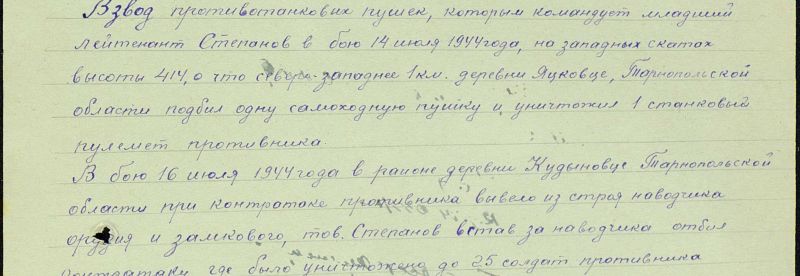 Взвод противотанковых пушек, которым командует младший
лейтенант Степанов в бою 14 июля 1944 года, на западных скатах
высоты 414,0 что северо-западнее 1 км. деревни Яцковце, Тарнопольской
области подбил одну самоходную пушку и уничтожил 1 станковый
пулемет противника.
В бою 16 июля 1944 года в районе деревни Кудыновце Тарнопольской
области при контратаке противника вывело из строя наводчика
орудия и замкового, тов. Степанов встав за наводчика отбил
контратаку где было уничтожено до 25 солдат противника